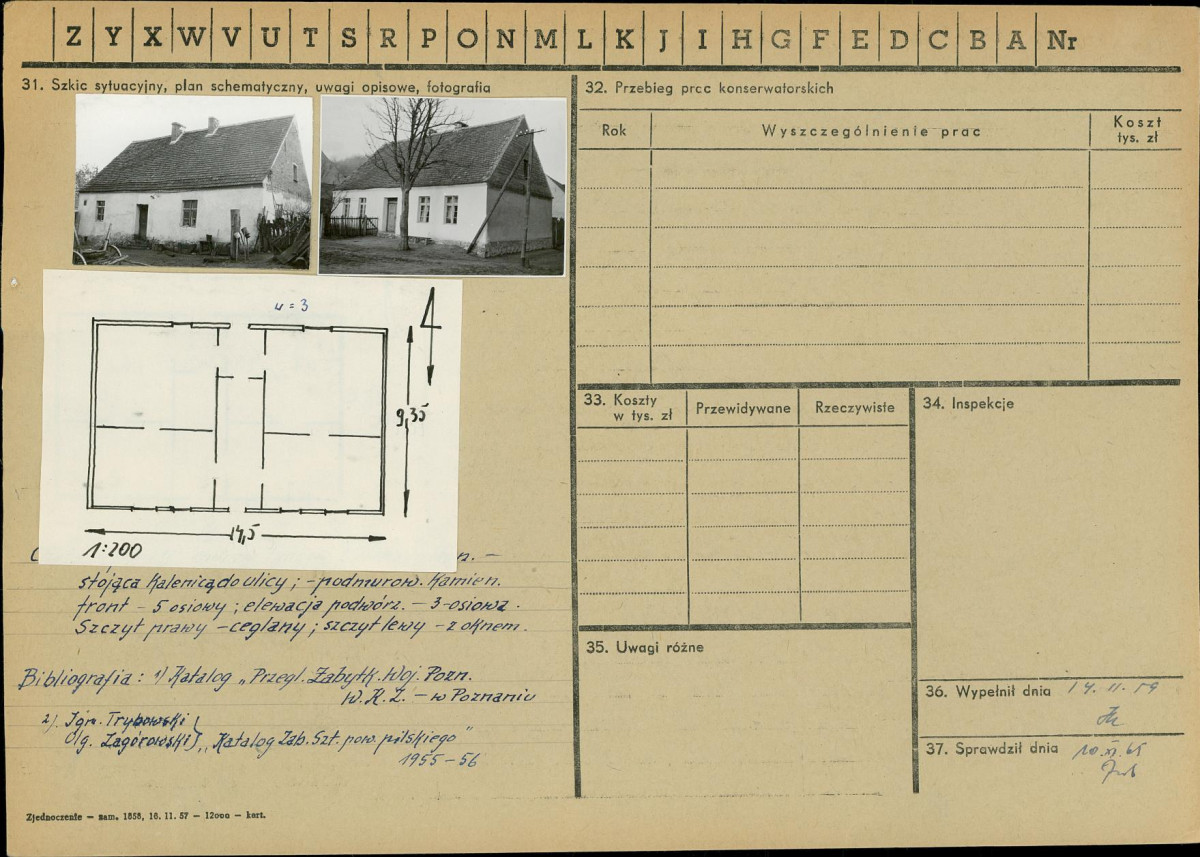 Z Y X W V U T S R P O N M L K J I H G F E D C B A Nr
31. Szkic sytuacyjny, plan schematyczny, uwagi opisowe, fotografia
u = 3
4
9,35
14,5
1:200
stojąca kalenicą do ulicy; - podmurow. kamien.
front - 5 osiowy; elewacja podwórz. - 3-osiowa.
Szczyt prawy - ceglany; szczyt lewy - z oknem.
Bibliografia: 1) Katalog "Przegl. Zabytk. Woj. Pozn.
W.K.Z. - w Poznaniu
2). Ign. Trybowski
Olg. Zagórowski } "Katalog Zab. Szt. pow. pilskiego"
1955-56
Zjednoczenie — zam. 1858, 16. 11. 57 — 12000 — kart.
32. Przebieg prac konserwatorskich
Rok
Wyszczególnienie prac
Koszt
tys. zł
33. Koszty
w tys. zł
Przewidywane
Rzeczywiste
34. Inspekcje
35. Uwagi różne
36. Wypełnił dnia 14. II. 59
37. Sprawdził dnia 10. XI. 65